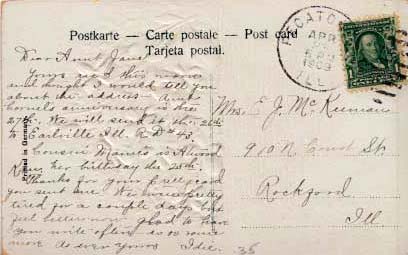 Postkarte — Carte postale — Post card
Tarjeta postal.
PECATONICA
APR
1909
ILL.
Dear Aunt Jane
Yours rec'd this
and thought I would tell you
about the address. Aunt
anniversary is the
27th. We will send it the 26th
to Earlville Ill. R.D. #43.
Cousin is
her birthday the 25th.
Thanks for your card
you sent me. We were
tired for a couple days but
feel better now. glad to have
you write often so
more As ever yours Idie.
38
Mrs. E. J. McKiernan
910 N Court St.
Rockford
Ill
Printed in Germany